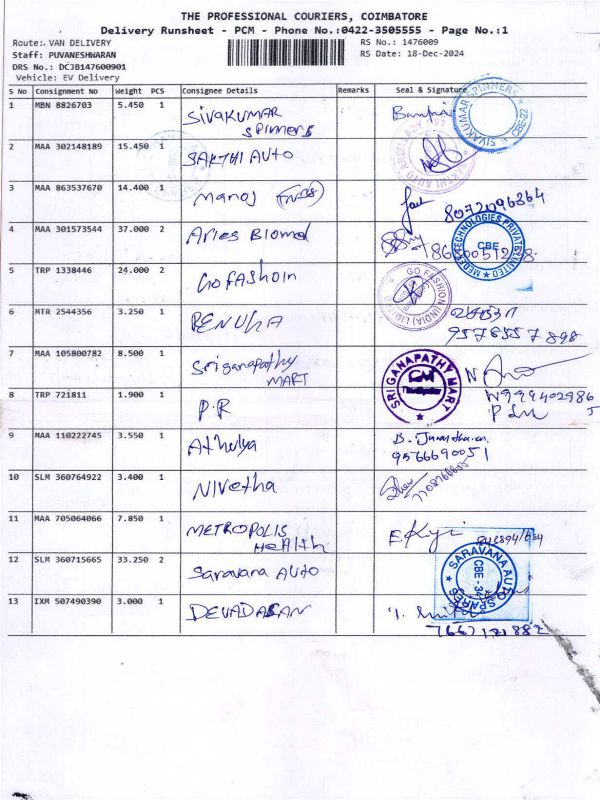 THE PROFESSIONAL COURIERS, COIMBATORE
Delivery Runsheet - PCM - Phone No.:0422-3505555 - Page No.:1
Route: VAN DELIVERY RS No.: 1476009
Staff: PUVANESHWARAN RS Date: 18-Dec-2024
DRS No.: DCJB147600901
Vehicle: EV Delivery
S No Consignment No Weight PCS Consignee Details Remarks Seal & Signature
1 MBN 8826703 5.450 1 SIVAKUMAR
SPINNERS
SIVAKUMAR SPINNERS CBE-22
2 MAA 302148189 15.450 1 SAKTHI AUTO
3 MAA 863537670 14.400 1 Manoj
8072096364
4 MAA 301573544 37.000 2 Aries Biomed
TECHNOLOGIES PRIVATE LIMITED CBE
5 TRP 1338446 24.000 2 GO FASHOIN
GO FASHION (INDIA) LIMITED
6 MTR 2544356 3.250 1 RENUKA
7 MAA 105800782 8.500 1 Sriganapathy
MART
SRIGANAPATHY MART
8 TRP 721811 1.900 1 P.R
9 MAA 110222745 3.550 1 Athulya
9566690051
10 SLM 360764922 3.400 1 Nivetha
11 MAA 705064066 7.850 1 METROPOLIS
Health
12 SLM 360715665 33.250 2 Saravana AUTO
SARAVANA AUTO SPARES CBE-34
13 IXM 507490390 3.000 1 DEVADASAN